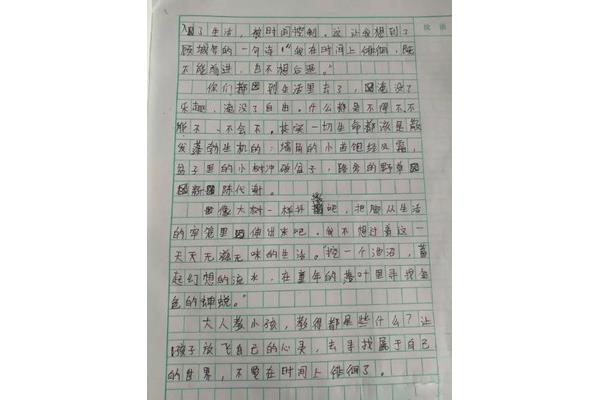 入了生活，被时间控制。这让我想到了
顾城写的一句诗"我在时间上徘徊，既
不能前进，也不想后退。"
你们都回到生活里去了，淹没了
乐趣，淹没了自由。什么都是不得不不
能不、不会不。其实一切生命都该是散
发蓬勃生机的：墙角的小苗饱经风霜，
盆子里的小树冲破盆子，路旁的野草
新陈代谢。
像大树一样开吧，把脚从生活
的牢笼里伸出来吧。我不想过着这一
天天无滋无味的生活。"挖一个池沼，蓄
起幻想的流水，在童年的落叶里寻找金
色的蝉蜕。"
大人教小孩，教得都是些什么？让
孩子放飞自己的心灵，去寻找属于自己
的世界，不要在时间上徘徊了。